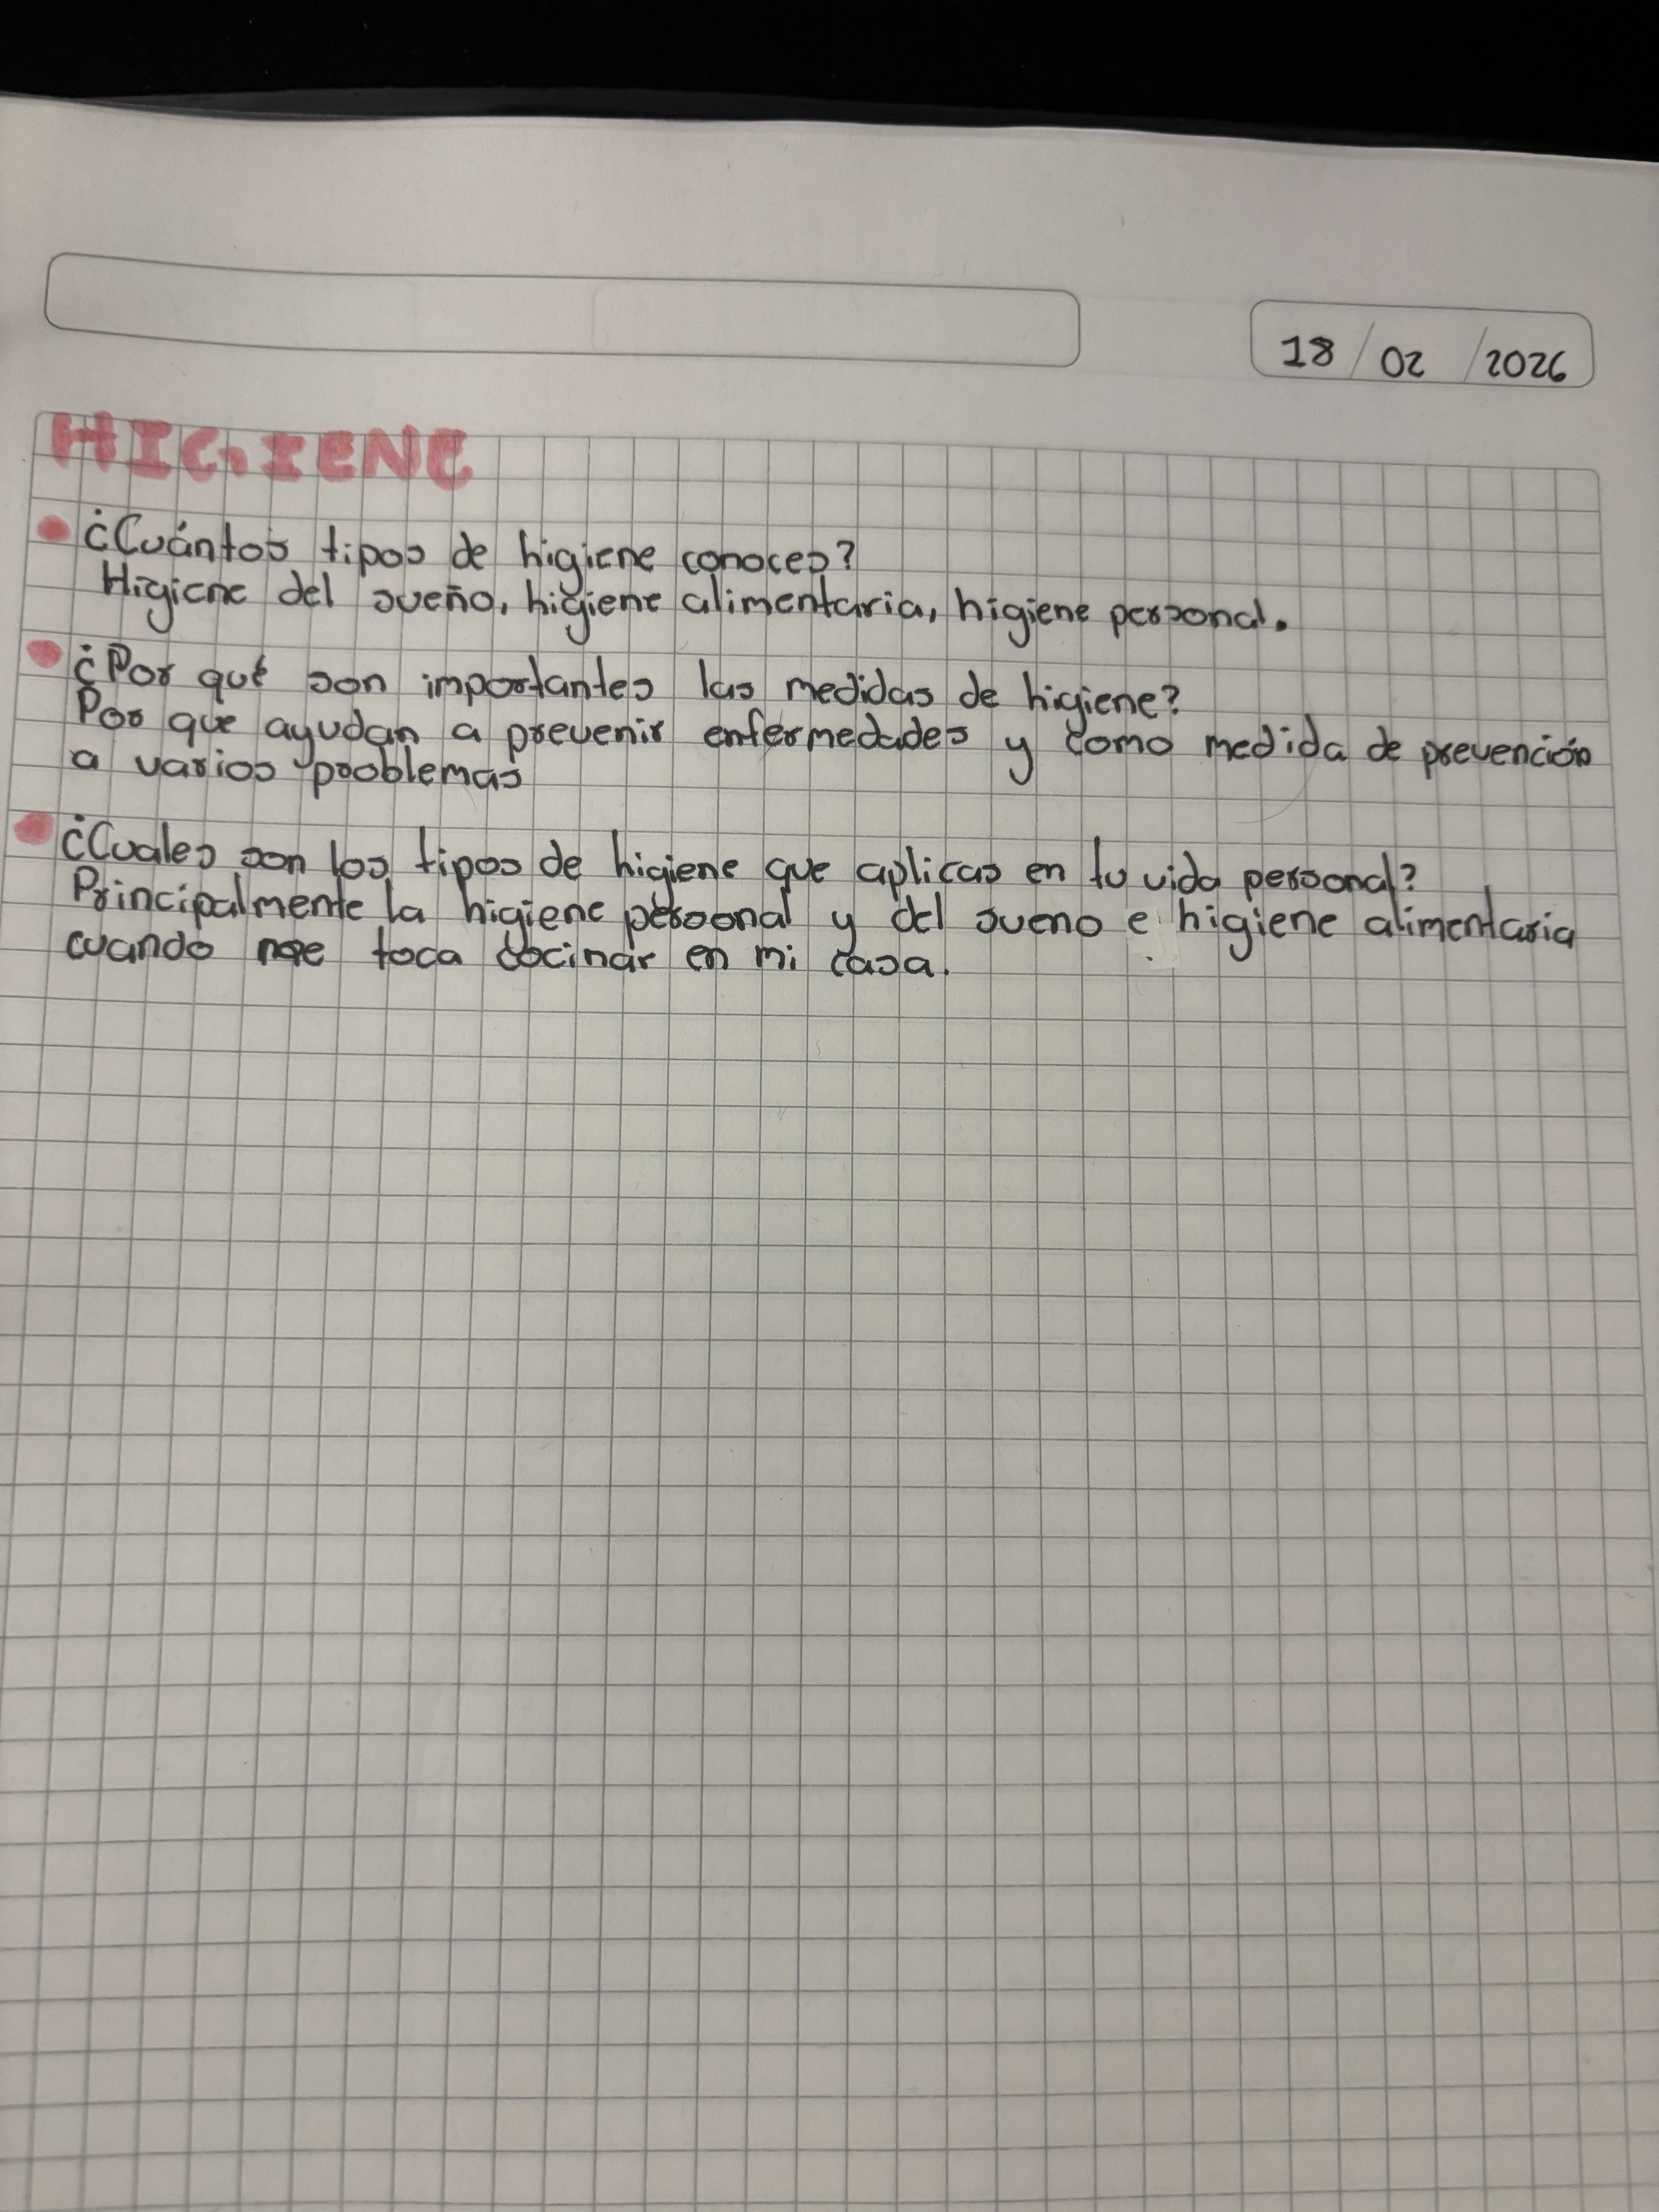 18/02/2026
HIGIENE
¿Cuántos tipos de higiene conoces?
Higiene del sueño, higiene alimentaria, higiene personal.
¿Por qué son importantes las medidas de higiene?
Por que ayudan a prevenir enfermedades y como medida de prevención
a varios problemas
¿Cuales son los tipos de higiene que aplicas en tu vida personal?
Principalmente la higiene personal y del sueno e higiene alimentaria
cuando me toca cocinar en mi casa.